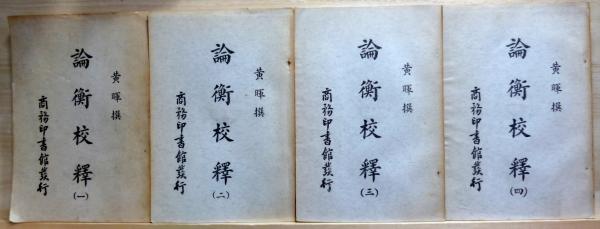 黃暉撰
論衡校釋
(一)
商務印書館發行
黃暉撰
論衡校釋
(二)
商務印書館發行
黃暉撰
論衡校釋
(三)
商務印書館發行
黃暉撰
論衡校釋
(四)
商務印書館發行